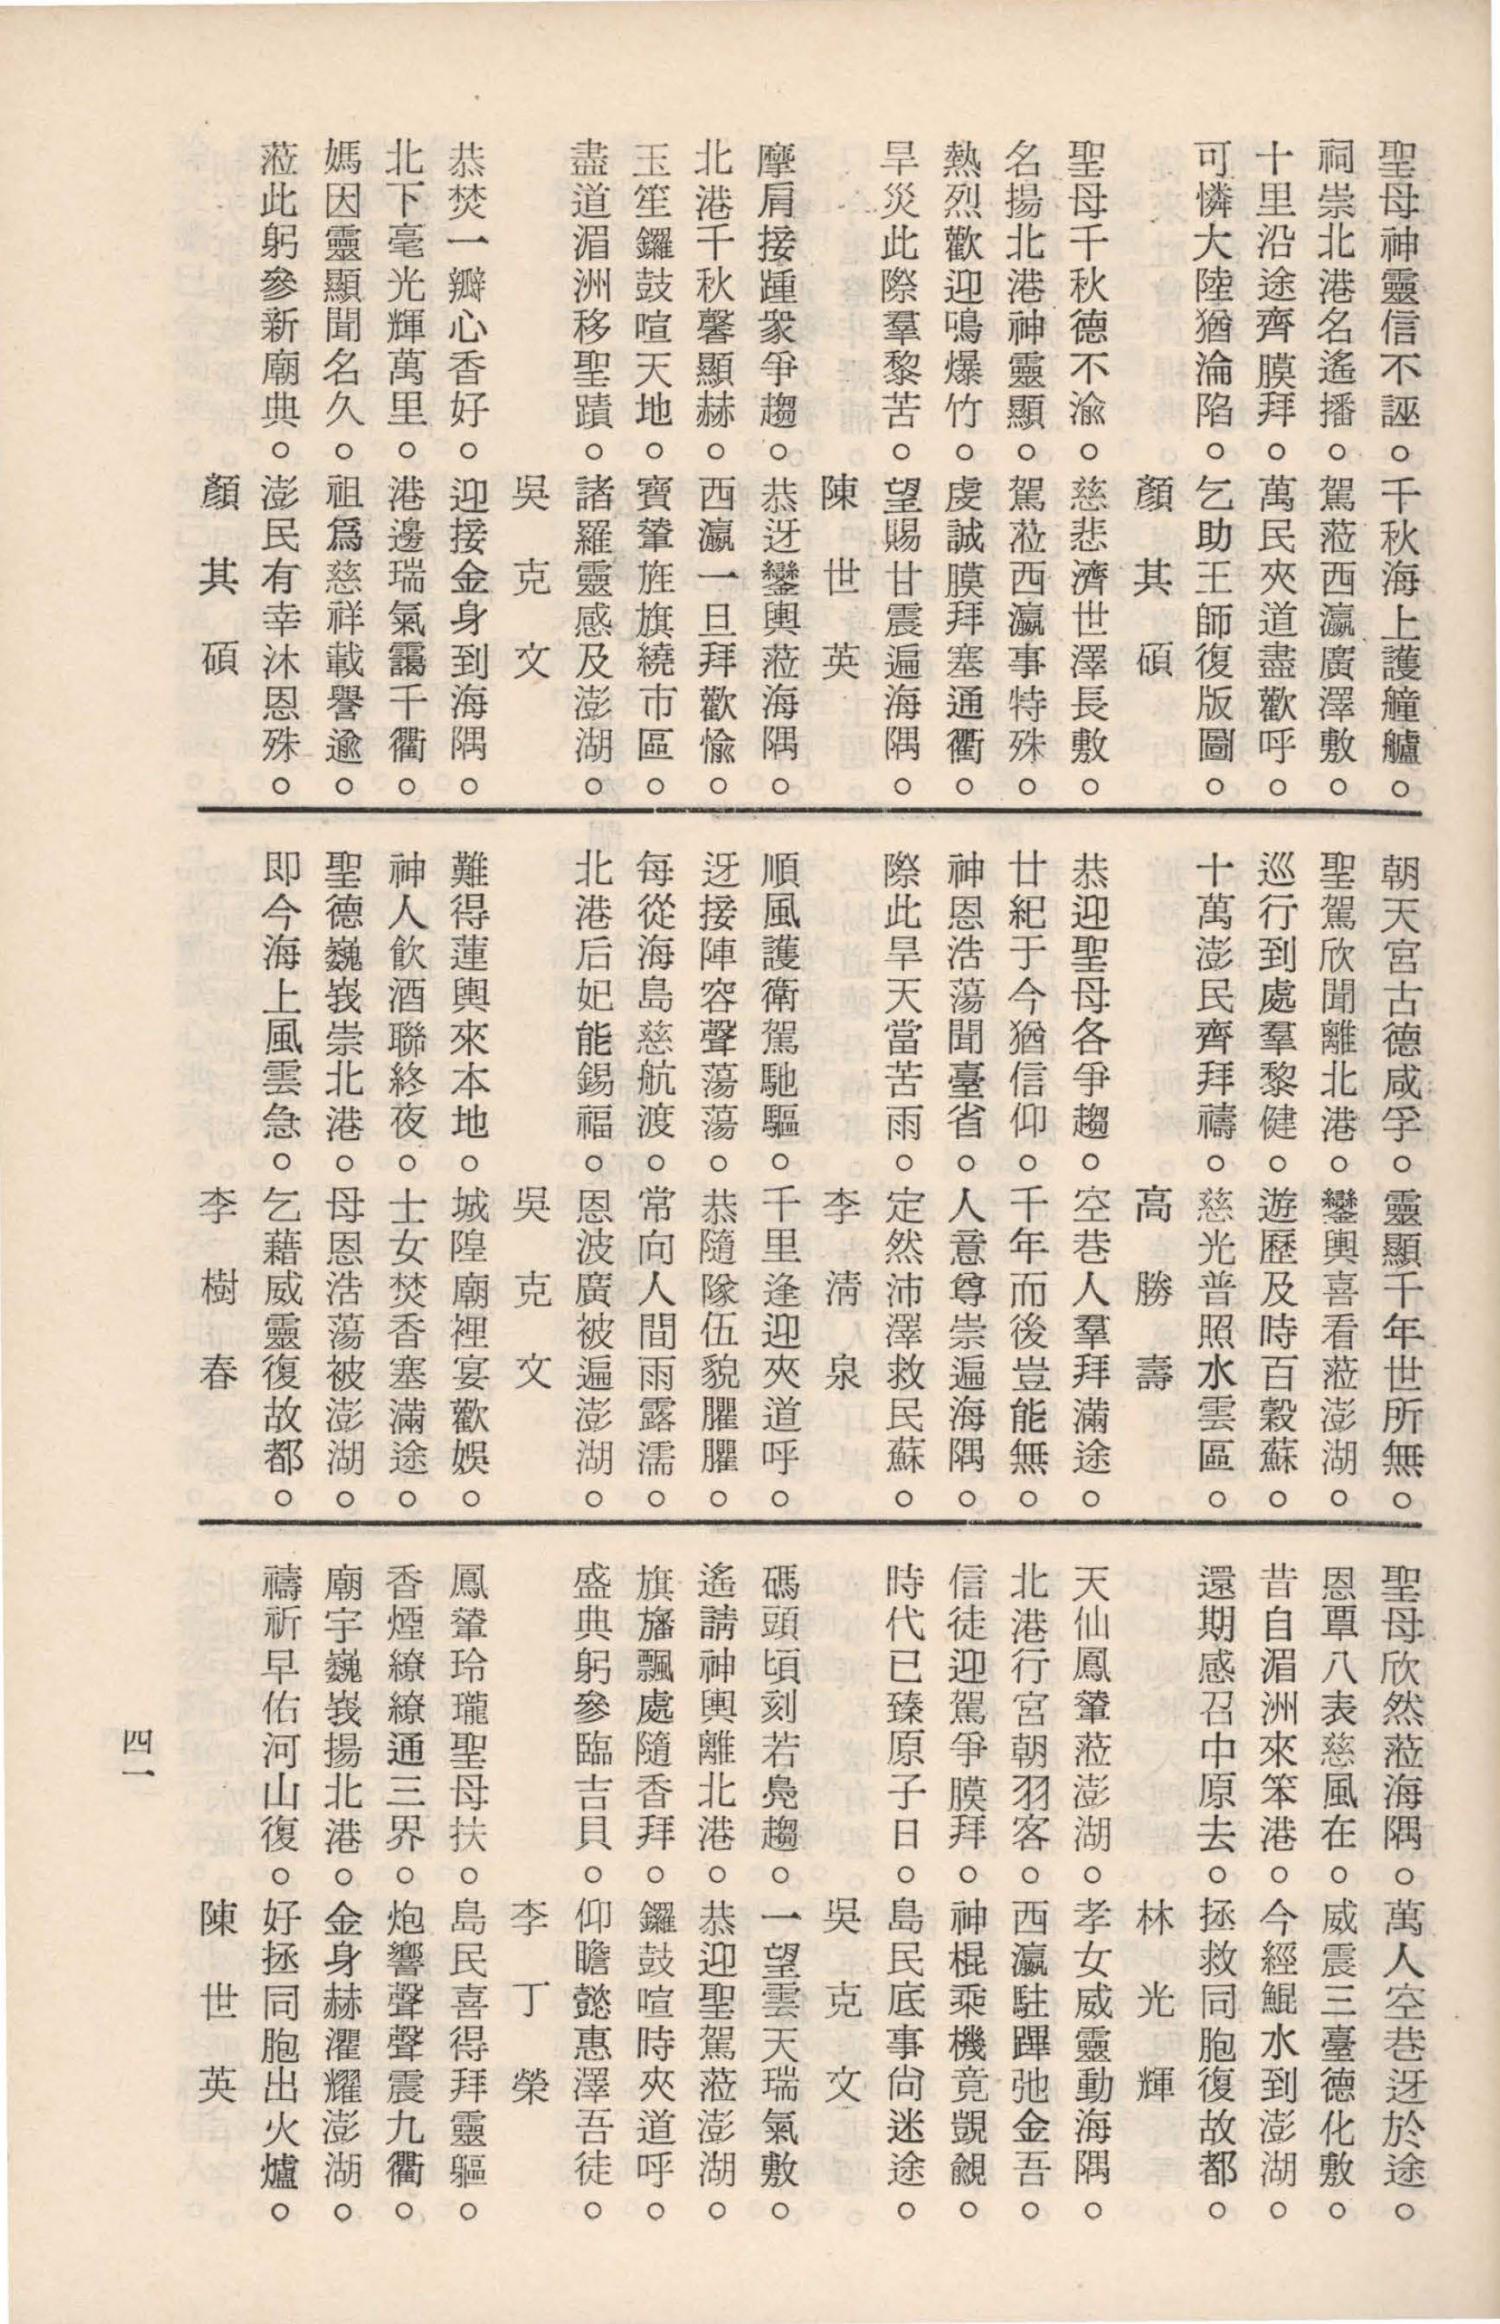 聖母神靈信不誣。千秋海上護艟艫。
祠崇北港名遙播。駕蒞西瀛廣澤敷。
十里沿途齊膜拜。萬民夾道盡歡呼。
可憐大陸猶淪陷。乞助王師復版圖。
顏其碩
聖母千秋德不渝。慈悲濟世澤長敷。
名揚北港神靈顯。駕蒞西瀛事特殊。
熱烈歡迎鳴爆竹。虔誠膜拜塞通衢。
旱災此際羣黎苦。望賜甘震遍海隅。
陳世英
摩肩接踵衆爭趨。恭迓鑾輿蒞海隅。
北港千秋馨顯赫。西瀛一旦拜歡愉。
玉笙鑼鼓喧天地。寶輦旌旗繞市區。
盡道湄洲移聖蹟。諸羅靈感及澎湖。
吳克文
恭焚一瓣心香好。迎接金身到海隅。
北下毫光輝萬里。港邊瑞氣靄千衢。
媽因靈顯聞名久。祖爲慈祥載譽逾。
蒞此躬參新廟典。澎民有幸沐恩殊。
顏其碩
朝天宮古德咸孚。靈顯千年世所無。
聖駕欣聞離北港。鑾輿喜看蒞澎湖。
巡行到處羣黎健。遊歷及時百穀蘇。
十萬澎民齊拜禱。慈光普照水雲區。
高勝壽
恭迎聖母各爭趨。空巷人羣拜滿途。
廿紀于今猶信仰。千年而後豈能無。
神恩浩蕩聞臺省。人意尊崇遍海隅。
際此旱天當苦雨。定然沛澤救民蘇。
李淸泉
順風護衛駕馳驅。千里逢迎夾道呼。
迓接陣容聲蕩蕩。恭隨隊伍貌臞臞。
每從海島慈航渡。常向人間雨露濡。
北港后妃能錫福。恩波廣被遍澎湖。
吳克文
難得蓮輿來本地。城隍廟裡宴歡娛。
神人飲酒聯終夜。士女焚香塞滿途。
聖德巍峩崇北港。母恩浩蕩被澎湖。
即今海上風雲急。乞藉威靈復故都。
李樹春
聖母欣然蒞海隅。萬人空巷迓於途。
恩覃八表慈風在。威震三臺德化敷。
昔自湄洲來笨港。今經鯤水到澎湖。
還期感召中原去。拯救同胞復故都。
林光輝
天仙鳳輦蒞澎湖。孝女威靈動海隅。
北港行宮朝羽客。西瀛駐蹕弛金吾。
信徒迎駕爭膜拜。神棍乘機竟覬覦。
時代已臻原子日。島民底事尙迷途。
吳克文
碼頭頃刻若鳧趨。一望雲天瑞氣敷。
遙請神輿離北港。恭迎聖駕蒞澎湖。
旗旛飄處隨香拜。鑼鼓喧時夾道呼。
盛典躬參臨吉貝。仰瞻懿惠澤吾徒。
李丁榮
鳳輦玲瓏聖母扶。島民喜得拜靈軀。
香煙繚繚通三界。炮響聲聲震九衢。
廟宇巍峩揚北港。金身赫濯耀澎湖。
禱祈早佑河山復。好拯同胞出火爐。
陳世英
四一